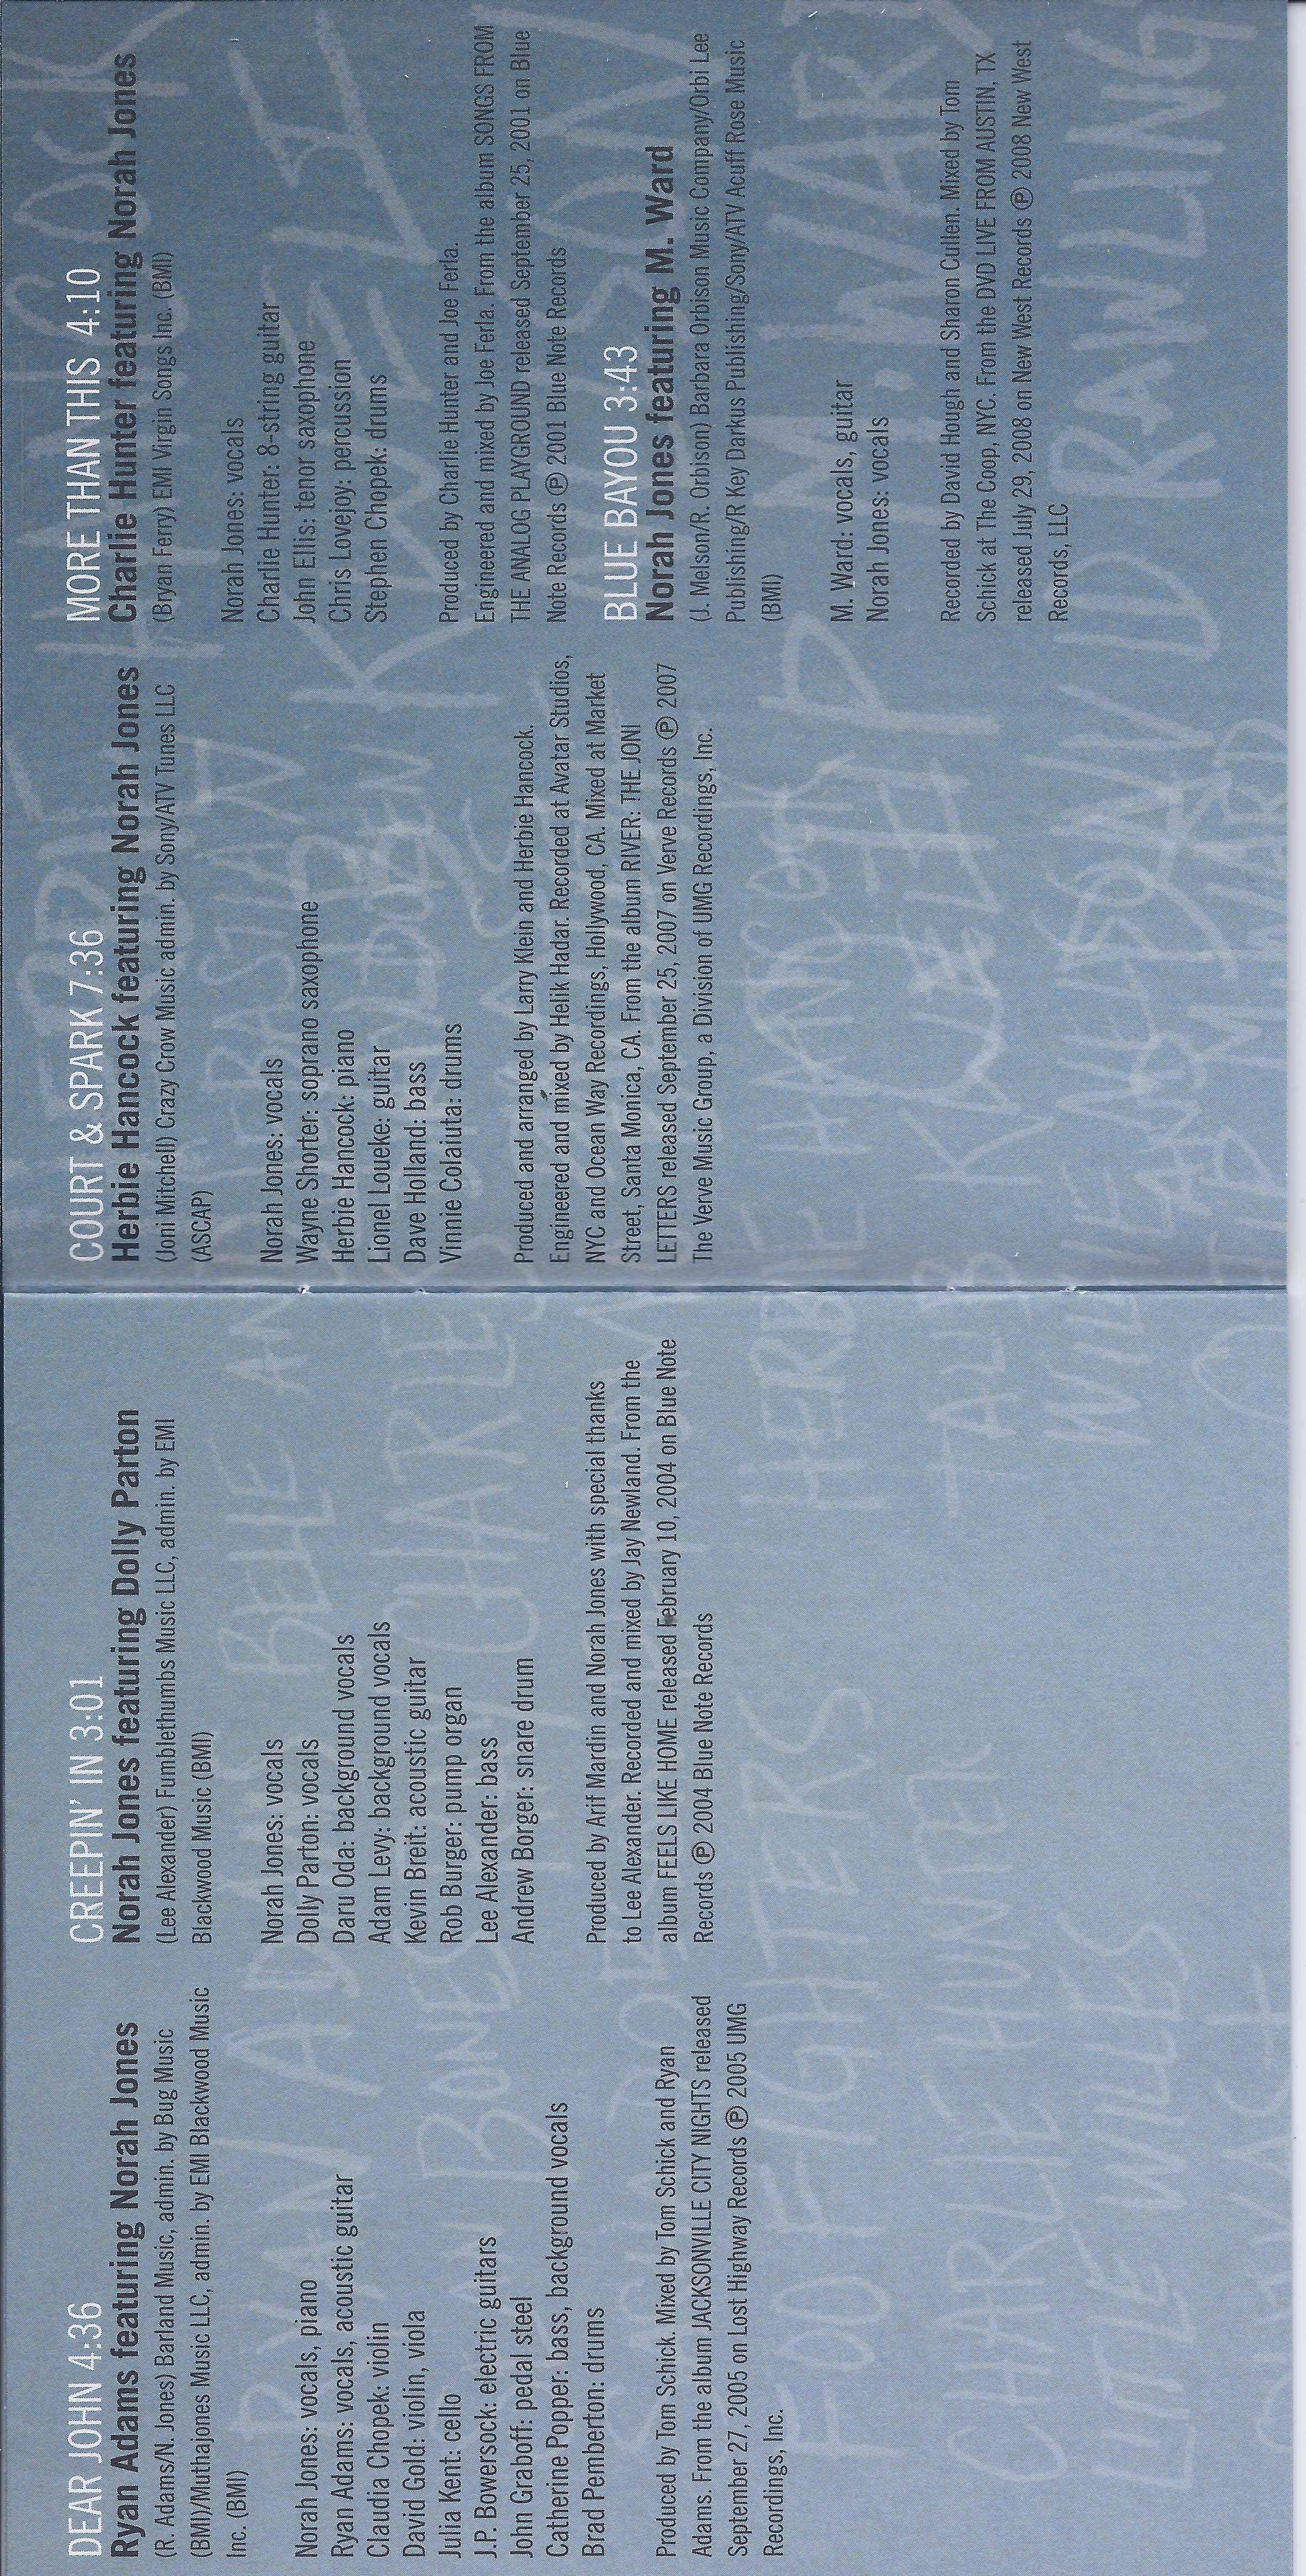 DEAR JOHN 4:36
Ryan Adams featuring Norah Jones
(R. Adams/N. Jones) Barland Music, admin. by Bug Music
(BMI)/Muthajones Music LLC, admin. by EMI Blackwood Music
Inc. (BMI)
Norah Jones: vocals, piano
Ryan Adams: vocals, acoustic guitar
Claudia Chopek: violin
David Gold: violin, viola
Julia Kent: cello
J.P. Bowersock: electric guitars
John Graboff: pedal steel
Catherine Popper: bass, background vocals
Brad Pemberton: drums
Produced by Tom Schick. Mixed by Tom Schick and Ryan
Adams. From the album JACKSONVILLE CITY NIGHTS released
September 27, 2005 on Lost Highway Records ℗ 2005 UMG
Recordings, Inc.
CREEPIN' IN 3:01
Norah Jones featuring Dolly Parton
(Lee Alexander) Fumblethumbs Music LLC, admin. by EMI
Blackwood Music (BMI)
Norah Jones: vocals
Dolly Parton: vocals
Daru Oda: background vocals
Adam Levy: background vocals
Kevin Breit: acoustic guitar
Rob Burger: pump organ
Lee Alexander: bass
Andrew Borger: snare drum
Produced by Arif Mardin and Norah Jones with special thanks
to Lee Alexander. Recorded and mixed by Jay Newland. From the
album FEELS LIKE HOME released February 10, 2004 on Blue Note
Records ℗ 2004 Blue Note Records
COURT & SPARK 7:36
Herbie Hancock featuring Norah Jones
(Joni Mitchell) Crazy Crow Music admin. by Sony/ATV Tunes LLC
(ASCAP)
Norah Jones: vocals
Wayne Shorter: soprano saxophone
Herbie Hancock: piano
Lionel Loueke: guitar
Dave Holland: bass
Vinnie Colaiuta: drums
Produced and arranged by Larry Klein and Herbie Hancock.
Engineered and mixed by Helik Hadar. Recorded at Avatar Studios,
NYC and Ocean Way Recordings, Hollywood, CA. Mixed at Market
Street, Santa Monica, CA. From the album RIVER: THE JONI
LETTERS released September 25, 2007 on Verve Records ℗ 2007
The Verve Music Group, a Division of UMG Recordings, Inc.
MORE THAN THIS 4:10
Charlie Hunter featuring Norah Jones
(Bryan Ferry) EMI Virgin Songs Inc. (BMI)
Norah Jones: vocals
Charlie Hunter: 8-string guitar
John Ellis: tenor saxophone
Chris Lovejoy: percussion
Stephen Chopek: drums
Produced by Charlie Hunter and Joe Ferla.
Engineered and mixed by Joe Ferla. From the album SONGS FROM
THE ANALOG PLAYGROUND released September 25, 2001 on Blue
Note Records ℗ 2001 Blue Note Records
BLUE BAYOU 3:43
Norah Jones featuring M. Ward
(J. Melson/R. Orbison) Barbara Orbison Music Company/Orbi Lee
Publishing/R Key Darkus Publishing/Sony/ATV Acuff Rose Music
(BMI)
M. Ward: vocals, guitar
Norah Jones: vocals
Recorded by David Hough and Sharon Cullen. Mixed by Tom
Schick at The Coop, NYC. From the DVD LIVE FROM AUSTIN, TX
released July 29, 2008 on New West Records ℗ 2008 New West
Records, LLC